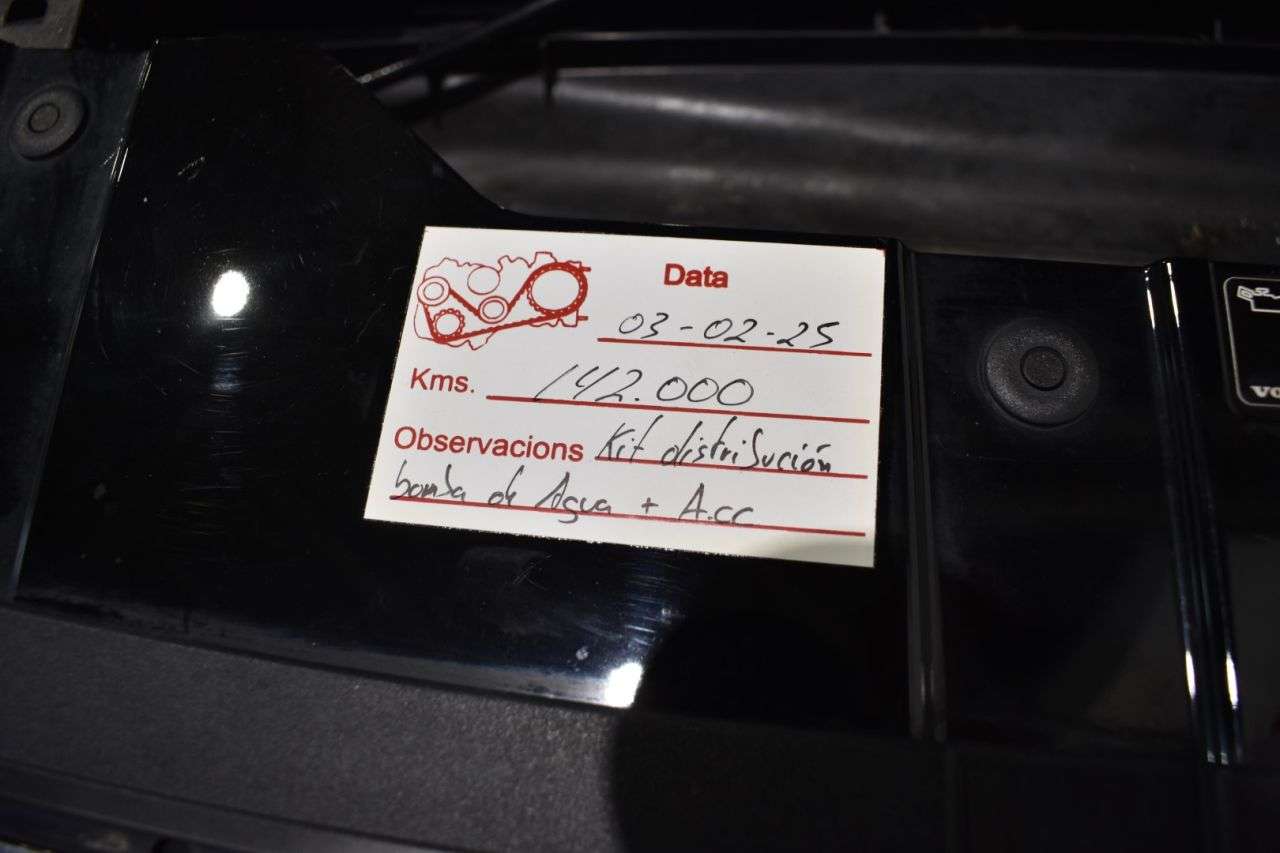 Data
03-02-25
Kms. 142.000
Observacions Kit distribución
bomba de Agua + A.cc